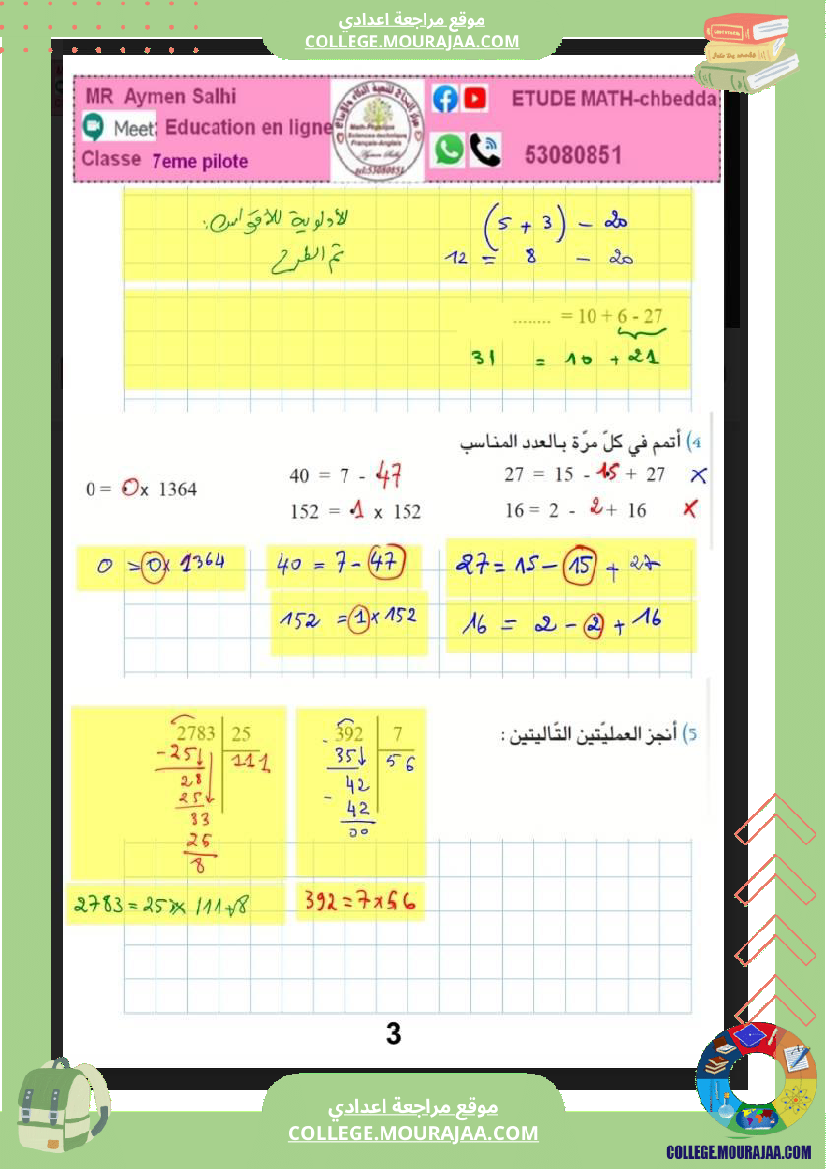 موقع مراجعة اعدادي
COLLEGE.MOURAJAA.COM
MR Aymen Salhi
Meet: Education en ligne
Classe 7eme pilote
ETUDE MATH-chbedda
53080851
(5 + 3) - 20
12 = 8 - 20
الأولوية للأقواس:
ثم الطرح
........ = 10 + 6 - 27
31 = 10 + 21
4) أتمم في كلّ مرّة بالعدد المناسب
27 = 15 - 15 + 27 ×
40 = 7 - 47
0 = 0 x 1364
16 = 2 - 2 + 16 ×
152 = 1 x 152
27 = 15 - 15 + 27
40 = 7 - 47
0 = 0 x 1364
16 = 2 - 2 + 16
152 = 1 x 152
5) أنجز العمليّتين التّاليتين :
392 7
- 35 56
42
- 42
00
392 = 7 x 56
2783 25
- 25 111
28
25
33
25
8
2783 = 25 x 111 + 8
3
موقع مراجعة اعدادي
COLLEGE.MOURAJAA.COM
COLLEGE.MOURAJAA.COM